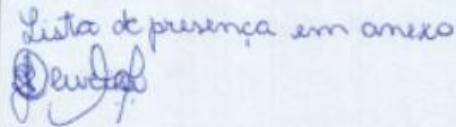 Lista de presença em anexo